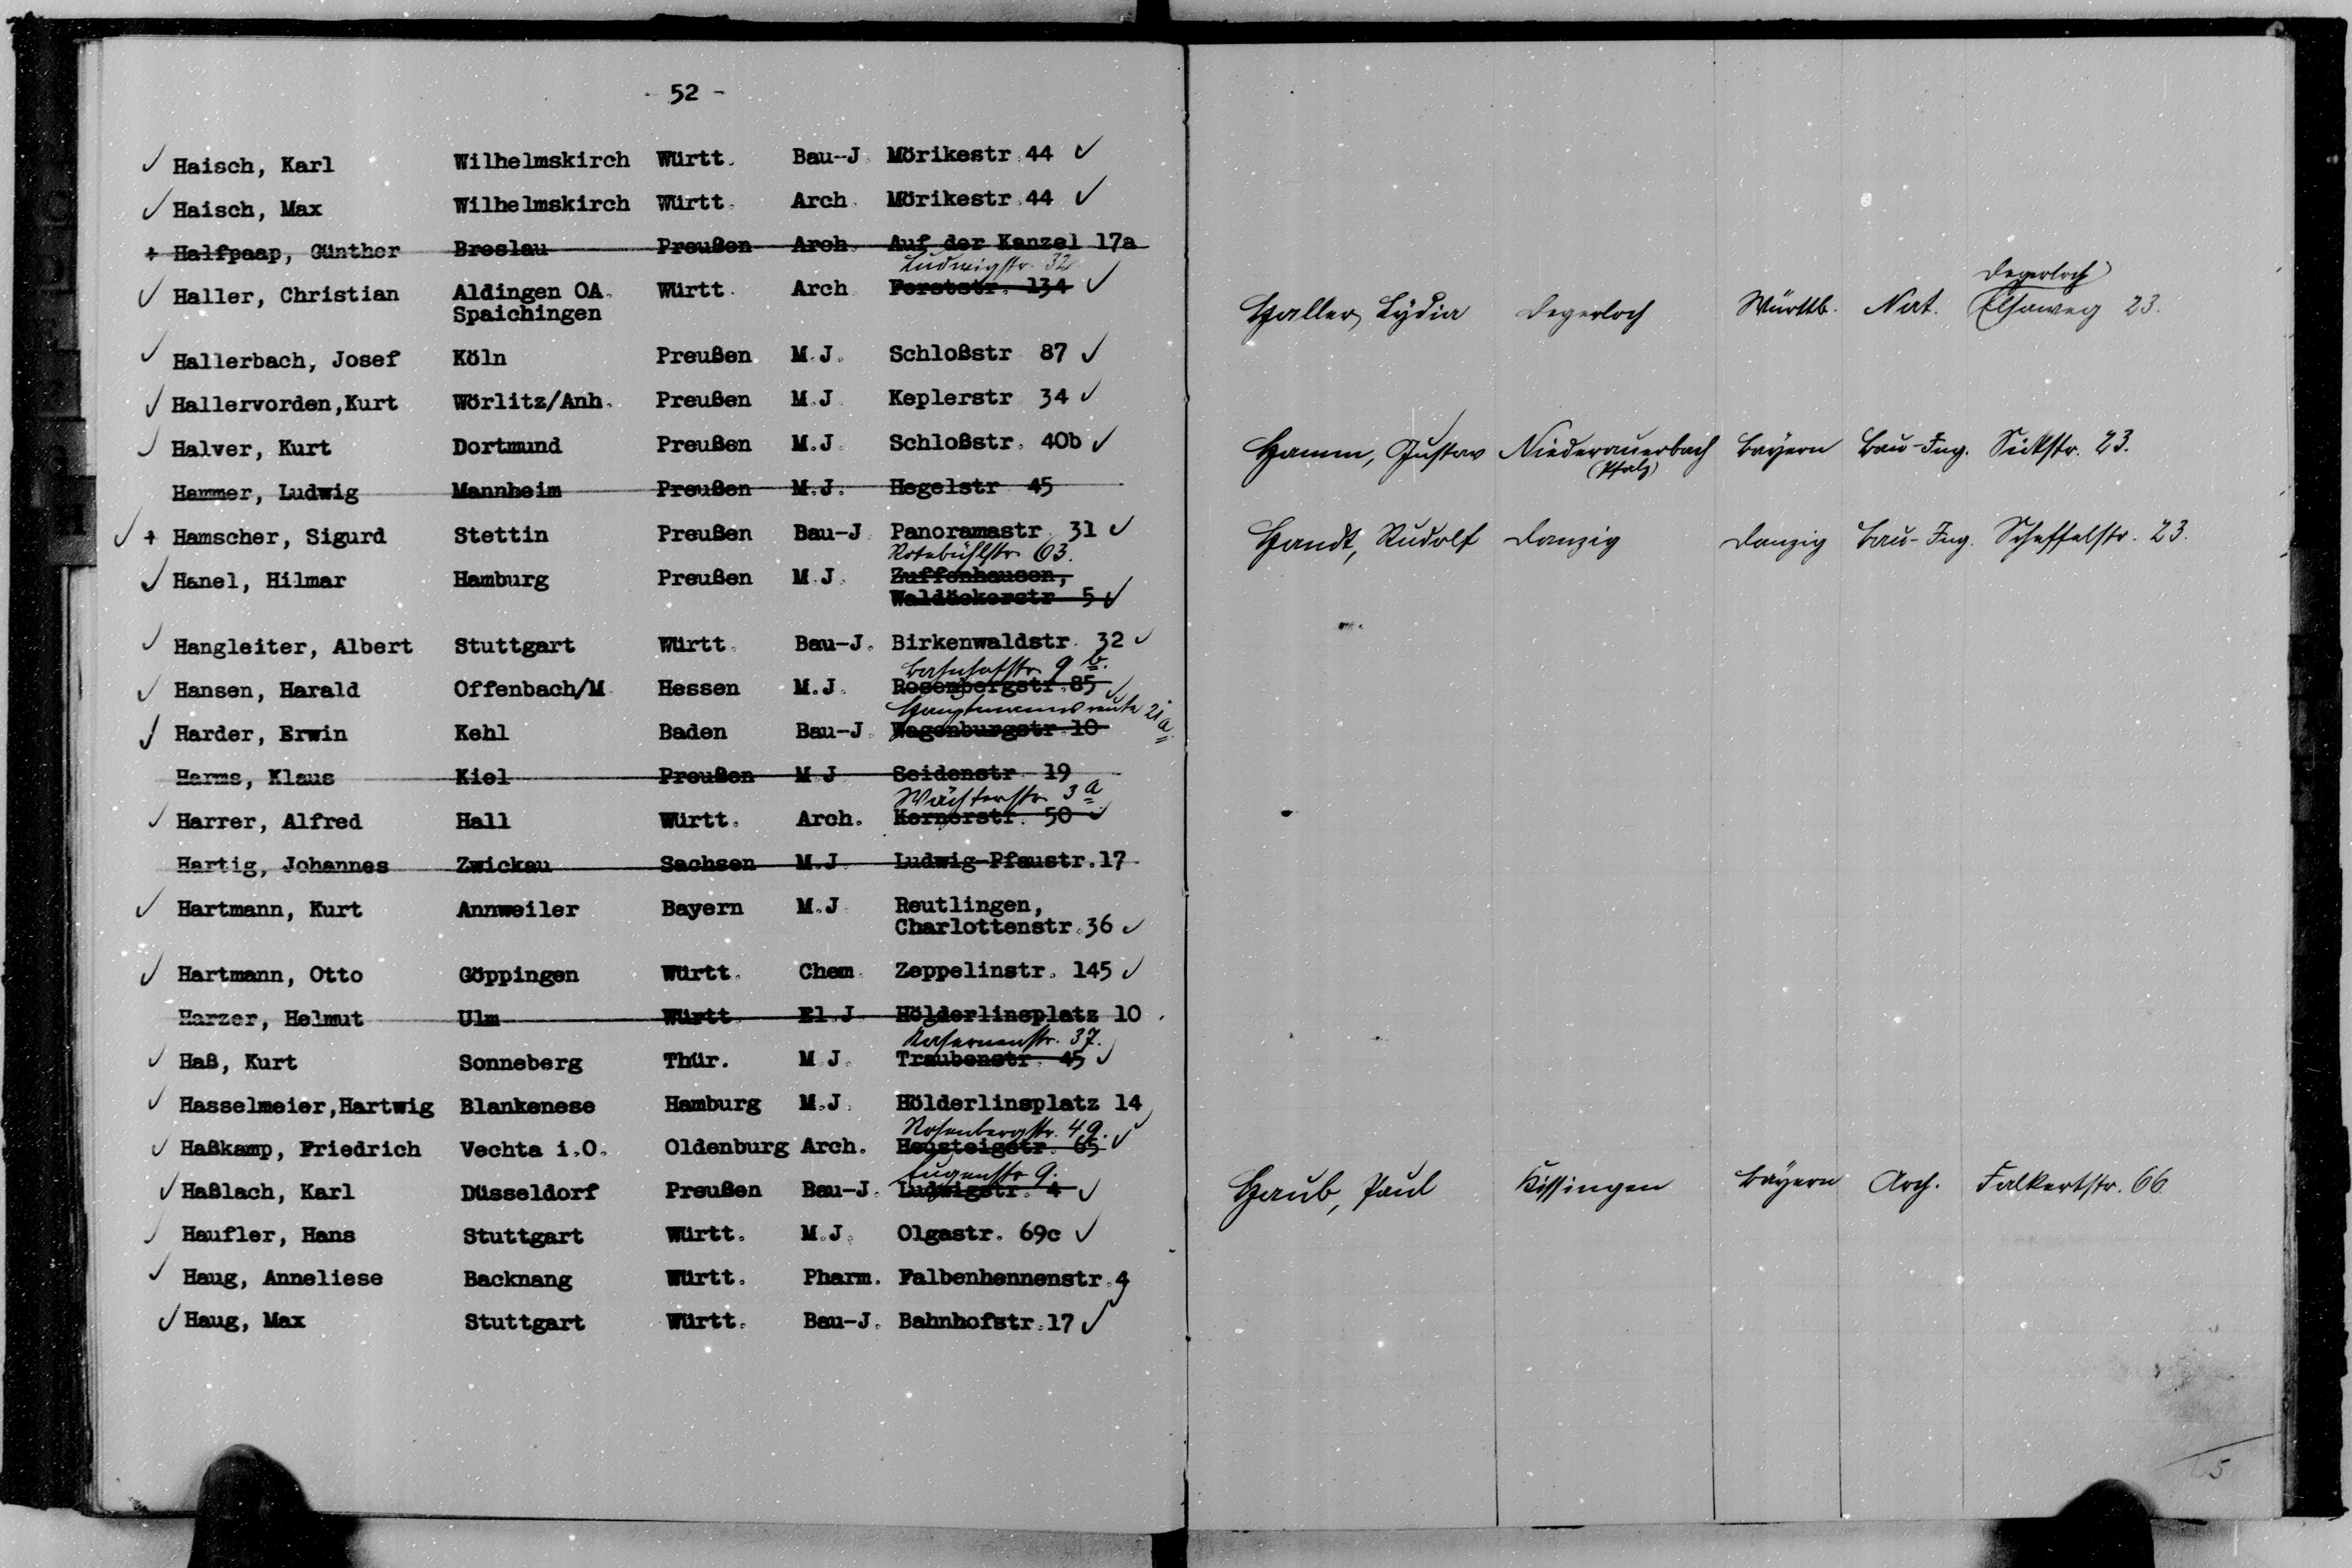 - 52 -
Haisch, Karl Wilhelmskirch Württ. Bau-J. Mörikestr. 44
Haisch, Max Wilhelmskirch Württ. Arch. Mörikestr. 44
+ Halfpaap, Günther Breslau Preußen Arch. Auf der Kanzel 17a
Ludwigstr. 32
Haller, Christian Aldingen OA. Württ. Arch. Forststr. 134
Spaichingen
Hallerbach, Josef Köln Preußen M.J. Schloßstr. 87
Hallervorden,Kurt Wörlitz/Anh. Preußen M.J. Keplerstr. 34
Halver, Kurt Dortmund Preußen M.J. Schloßstr. 40b
Hammer, Ludwig Mannheim Preußen M.J. Hegelstr. 45
+ Hamscher, Sigurd Stettin Preußen Bau-J. Panoramastr. 31
Rotebühlstr. 63.
Hanel, Hilmar Hamburg Preußen M.J. Zuffenhausen,
Waldäckerstr. 5
Hangleiter, Albert Stuttgart Württ. Bau-J. Birkenwaldstr. 32
Bahnhofstr. 9 b.
Hansen, Harald Offenbach/M. Hessen M.J. Rosenbergstr. 85
Hauptmannsreute 21a.
Harder, Erwin Kehl Baden Bau-J. Wagenburgstr. 10
Harms, Klaus Kiel Preußen M.J. Seidenstr. 19
Wächterstr. 3 a
Harrer, Alfred Hall Württ. Arch. Kernerstr. 50
Hartig, Johannes Zwickau Sachsen M.J. Ludwig-Pfaustr.17
Hartmann, Kurt Annweiler Bayern M.J. Reutlingen,
Charlottenstr. 36
Hartmann, Otto Göppingen Württ. Chem. Zeppelinstr. 145
Harzer, Helmut Ulm Württ. El.J. Hölderlinsplatz 10
Kasernenstr. 37.
Haß, Kurt Sonneberg Thür. M.J. Traubenstr. 45
Hasselmeier,Hartwig Blankenese Hamburg M.J. Hölderlinsplatz 14
Rosenbergstr. 49.
Haßkamp, Friedrich Vechta i.O. Oldenburg Arch. Heusteigstr. 65
Eugenstr. 9.
Haßlach, Karl Düsseldorf Preußen Bau-J. Ludwigstr. 4
Haufler, Hans Stuttgart Württ. M.J. Olgastr. 69c
Haug, Anneliese Backnang Württ. Pharm. Falbenhennenstr. 4
Haug, Max Stuttgart Württ. Bau-J. Bahnhofstr. 17
Degerloch
Haller, Lydia Degerloch Württb. Nat. Elsaweg 23.
Hamm, Gustav Niederauerbach Bayern Bau-Ing. 23.
(Pfalz)
Handt, Rudolf Danzig Danzig Bau-Ing. Scheffelstr. 23.
Haub, Paul Kissingen Bayern Arch. Falkertstr. 66
5